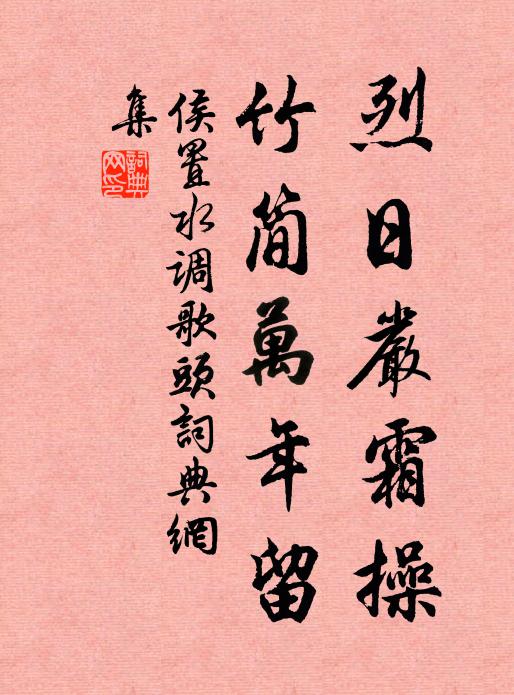 烈日嚴霜操
竹简萬年留
侯置水调歌頭詞典網
集
詞典
网印